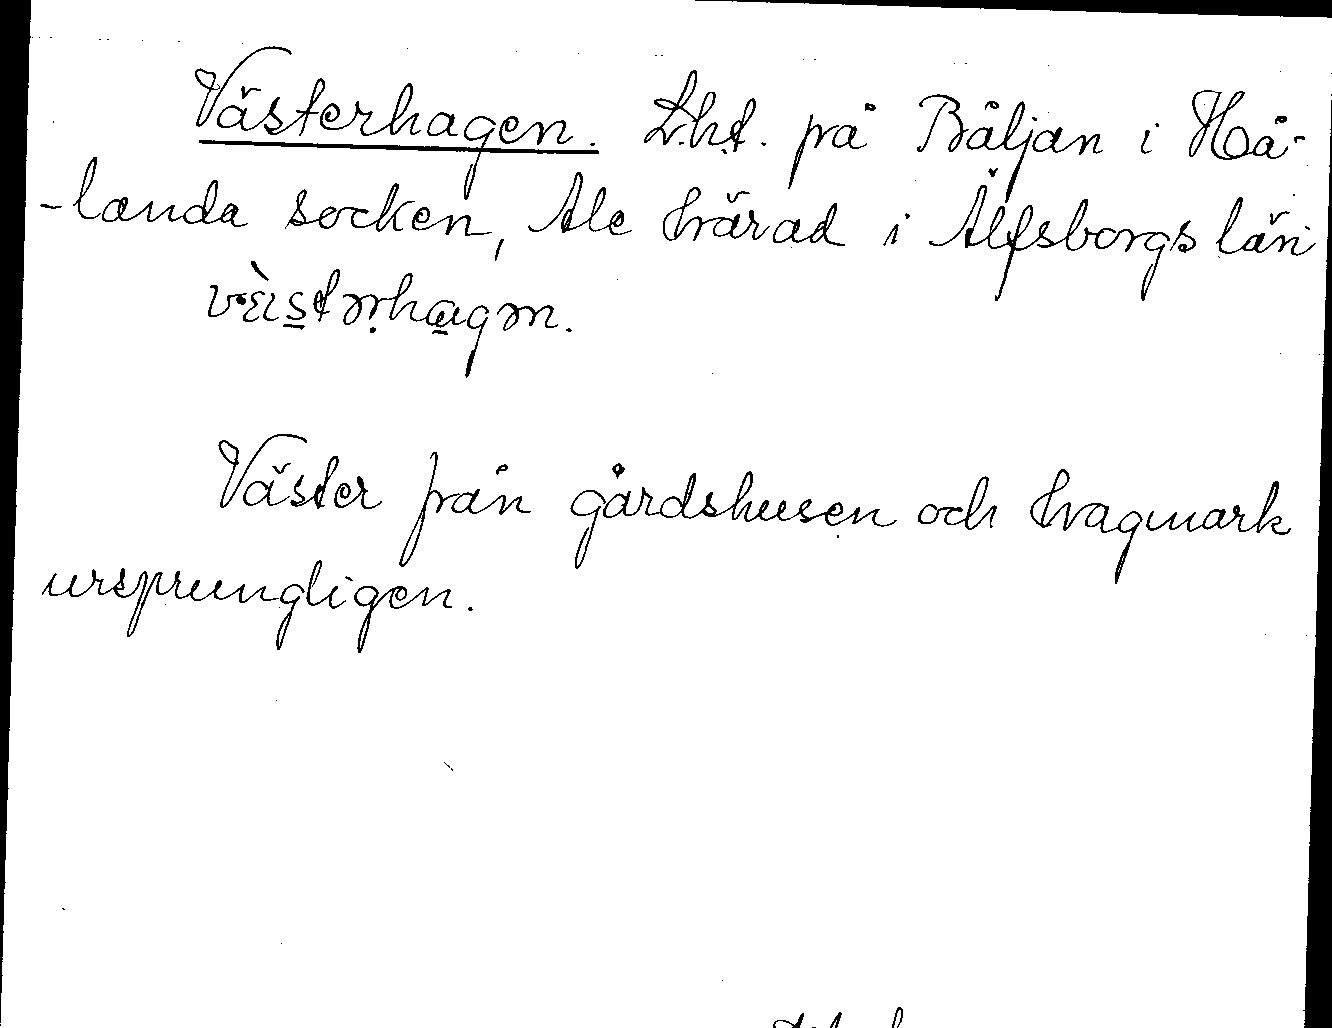 Västerhagen. Lht. på Båljan i Hå-
-landa socken, Ale härad i Älfsborgs län
Väster från gårdshusen och hagmark
ursprungligen.